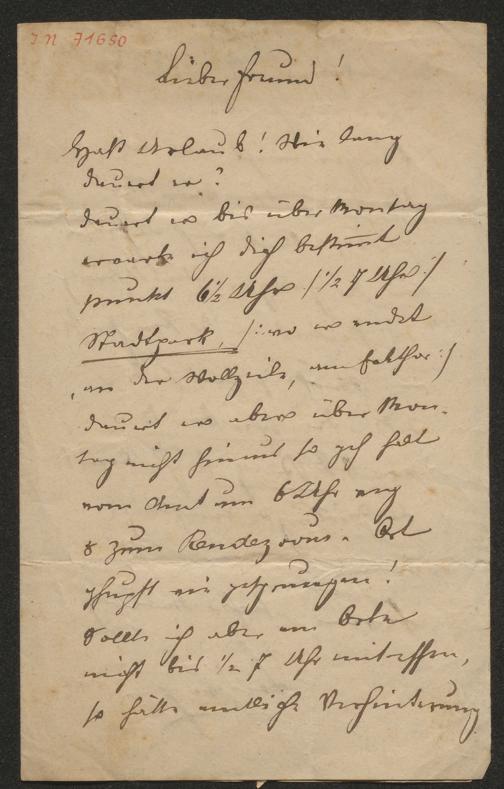 IN 71650
Lieber Freund!
Hast Urlaub! Wie lang
dauert er?
dauert er bis über Montag
erwarte ich dich bestimmt
punkt 6 1/2 Uhr /: 1/2 7 Uhr :/
Stadtpark, /: wo er endet
an der Wollzeile, am
dauert er aber über Mon-
tag nicht hinaus so geh halt
vom Amt um 6 Uhr weg
& zum Rendezvous-Ort
ghupft wie gesprungen!
Sollte ich aber am Orte
nicht bis 1/2 7 Uhr eintreffen,
so hätte amtliche Verhinderung